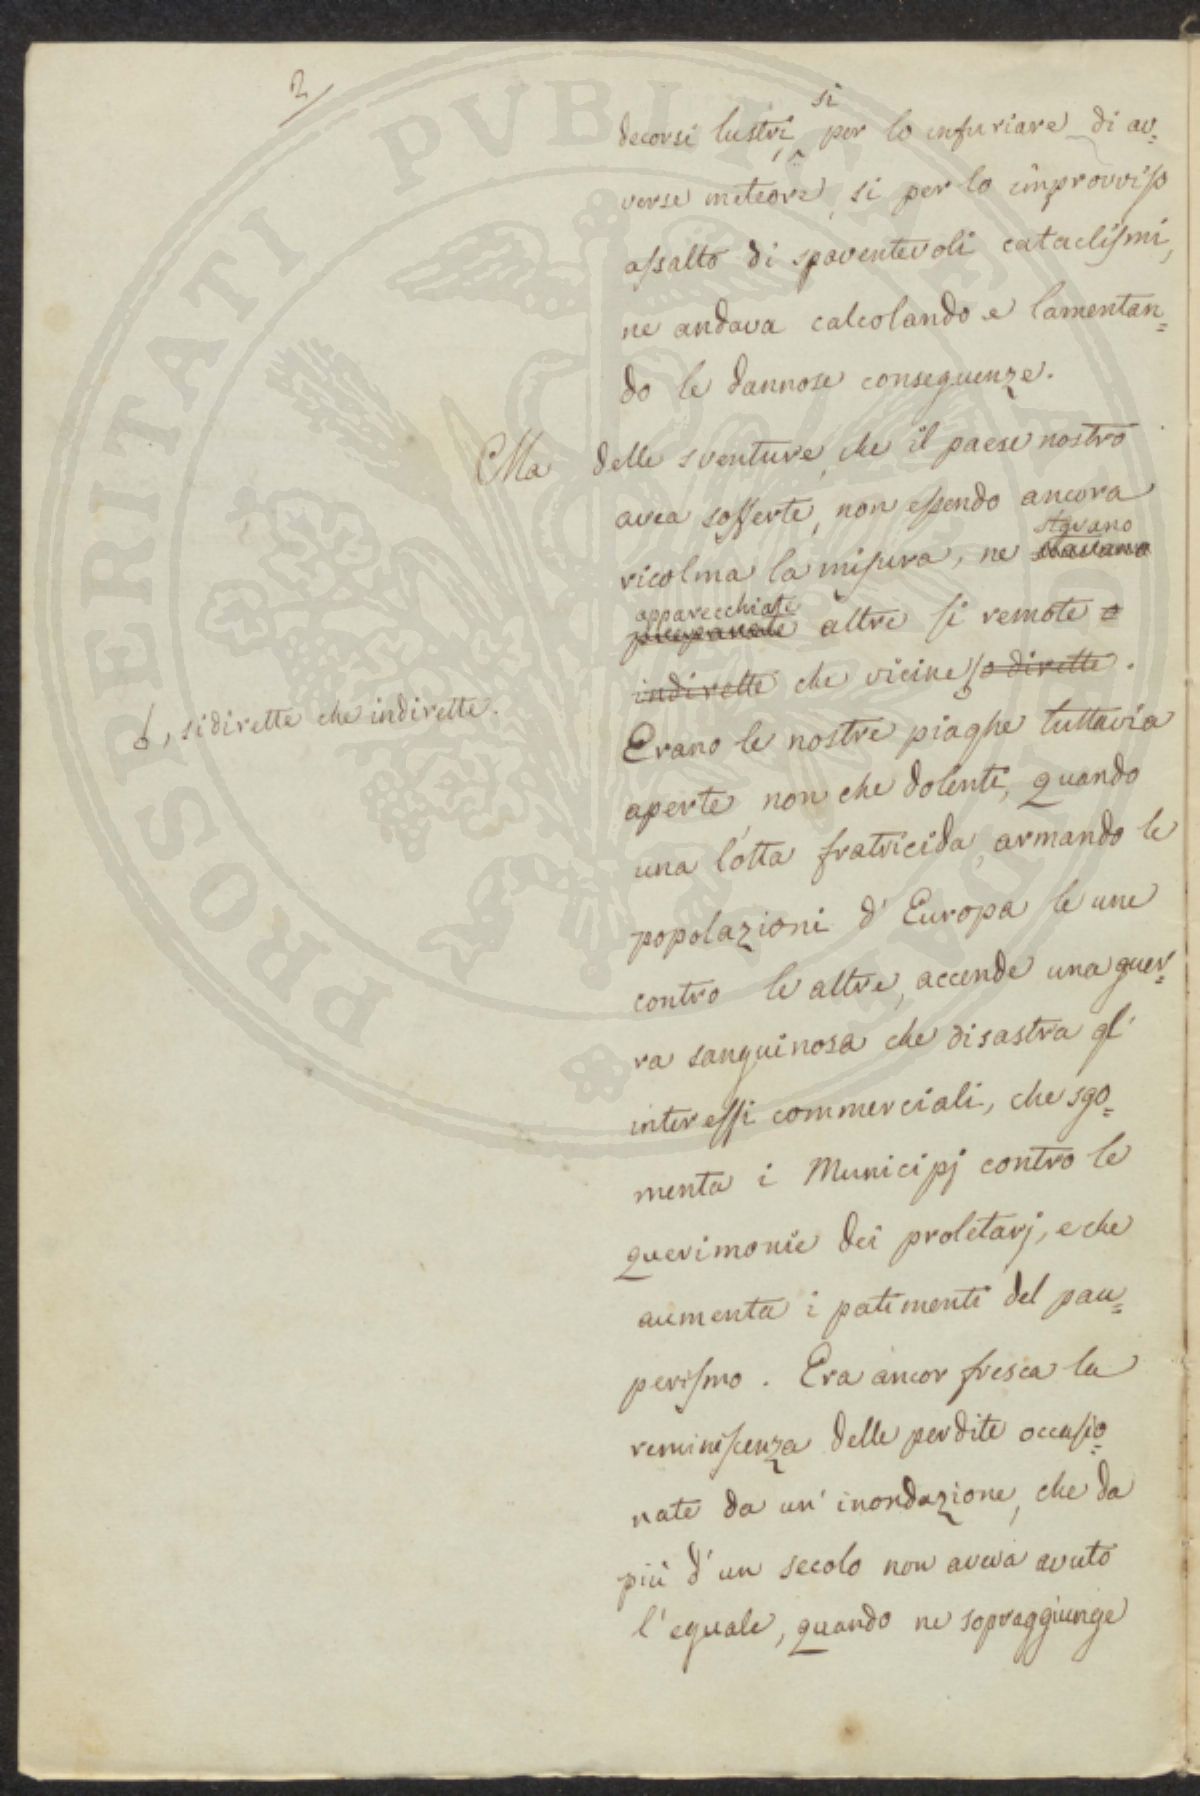 2/
decorsi lustri, si per lo infuriare di av=
verse meteore, si per lo improvviso
assalto di spaventevoli cataclismi,
ne andava calcolando e lamentan=
do le dannose conseguenze.
Ma delle sventure, che il paese nostro
avea sofferte, non essendo ancora
stavano
ricolma la misura, ne
apparecchiate
preparate altre si remote e
indirette che vicine o dirette.
, si dirette che indirette.
Erano le nostre piaghe tuttavia
aperte, non che dolenti, quando
una lotta fratricida, armando le
popolazioni d'Europa le une
contro le altre, accende una guer=
ra sanguinosa che disastra gl'
interessi commerciali, che sgo=
menta i Municipj contro le
querimonie dei proletarj, e che
aumenta i patimenti del pau=
perismo. Era ancor fresca la
reminiscenza delle perdite occasio=
nate da un' inondazione, che da
più d'un secolo non aveva avuto
l'eguale, quando ne sopraggiunge
PROSPERITATI PVBLICAE